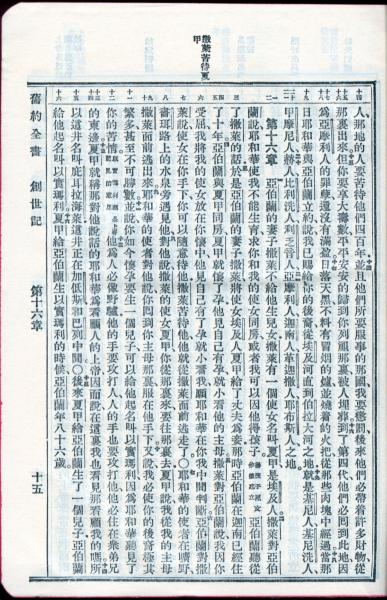 撒萊苦待夏甲
人那地的人要苦待他們四百年並且他們所要服事的那國我要懲罰後來他們必帶着許多財物從
那裏出來但你要享大壽數平平安安的歸到你列祖那裏被人埋葬到了第四代他們必囘到此地因
爲亞摩利人的罪孽還沒有滿盈日落天黑不料有冒烟的爐並燒着的火把從那些肉塊中經過當那
日耶和華與亞伯蘭立約說我已賜給你的後裔從埃及河直到伯拉大河之地就是基尼人基尼洗人
甲摩尼人赫人比利洗人利乏音人亞摩利人迦南人革迦撒人耶布斯人之地
第十六章 亞伯蘭的妻子撒萊不給他生兒女撒萊有一個使女名叫夏甲是埃及人撒萊對亞伯
蘭說耶和華使我不能生育求你和我的使女同房或者我可以因他得孩子 亞伯蘭聽從
了撒萊的話於是亞伯蘭的妻子撒萊將使女埃及人夏甲給了丈夫爲妾那時亞伯蘭在迦南已經住
了十年亞伯蘭與夏甲同房夏甲就懷了孕他見自己有孕就小看他的主母撒萊對亞伯蘭說我因你
受屈我將我的使女放在你懷中他見自己有了孕就小看我願耶和華在你我中間判斷亞伯蘭對撒
萊說使女在你手下你可以隨意待他撒萊苦待他他就從撒萊面前逃走了○耶和華的使者在曠野
書珥路上的水泉旁遇見他對他說撒萊的使女夏甲你從那裏來要往那裏去夏甲說我從我的主母
撒萊面前逃出來耶和華的使者對他說你囘到你主母那裏服在他手下又說我必使你的後裔極其
繁多甚至不可勝數並說你如今懷孕要生一個兒子可以給他起名叫以實瑪利因爲耶和華聽見了
你的苦情 他爲人必像野驢他的手要攻打人人的手也要攻打他他必住在衆弟兄
的東邊夏甲就稱那對他說話的耶和華爲看顧人的上帝因而說在這裏我也看見那看顧我的嗎所
以這井名叫庇耳拉海萊這井正在加低斯和巴列中間○後來夏甲給亞伯蘭生了一個兒子亞伯蘭
給他起名叫以實瑪利夏甲給亞伯蘭生以實瑪利的時候亞伯蘭年八十六歲
舊約全書 創世記 第十六章 十五